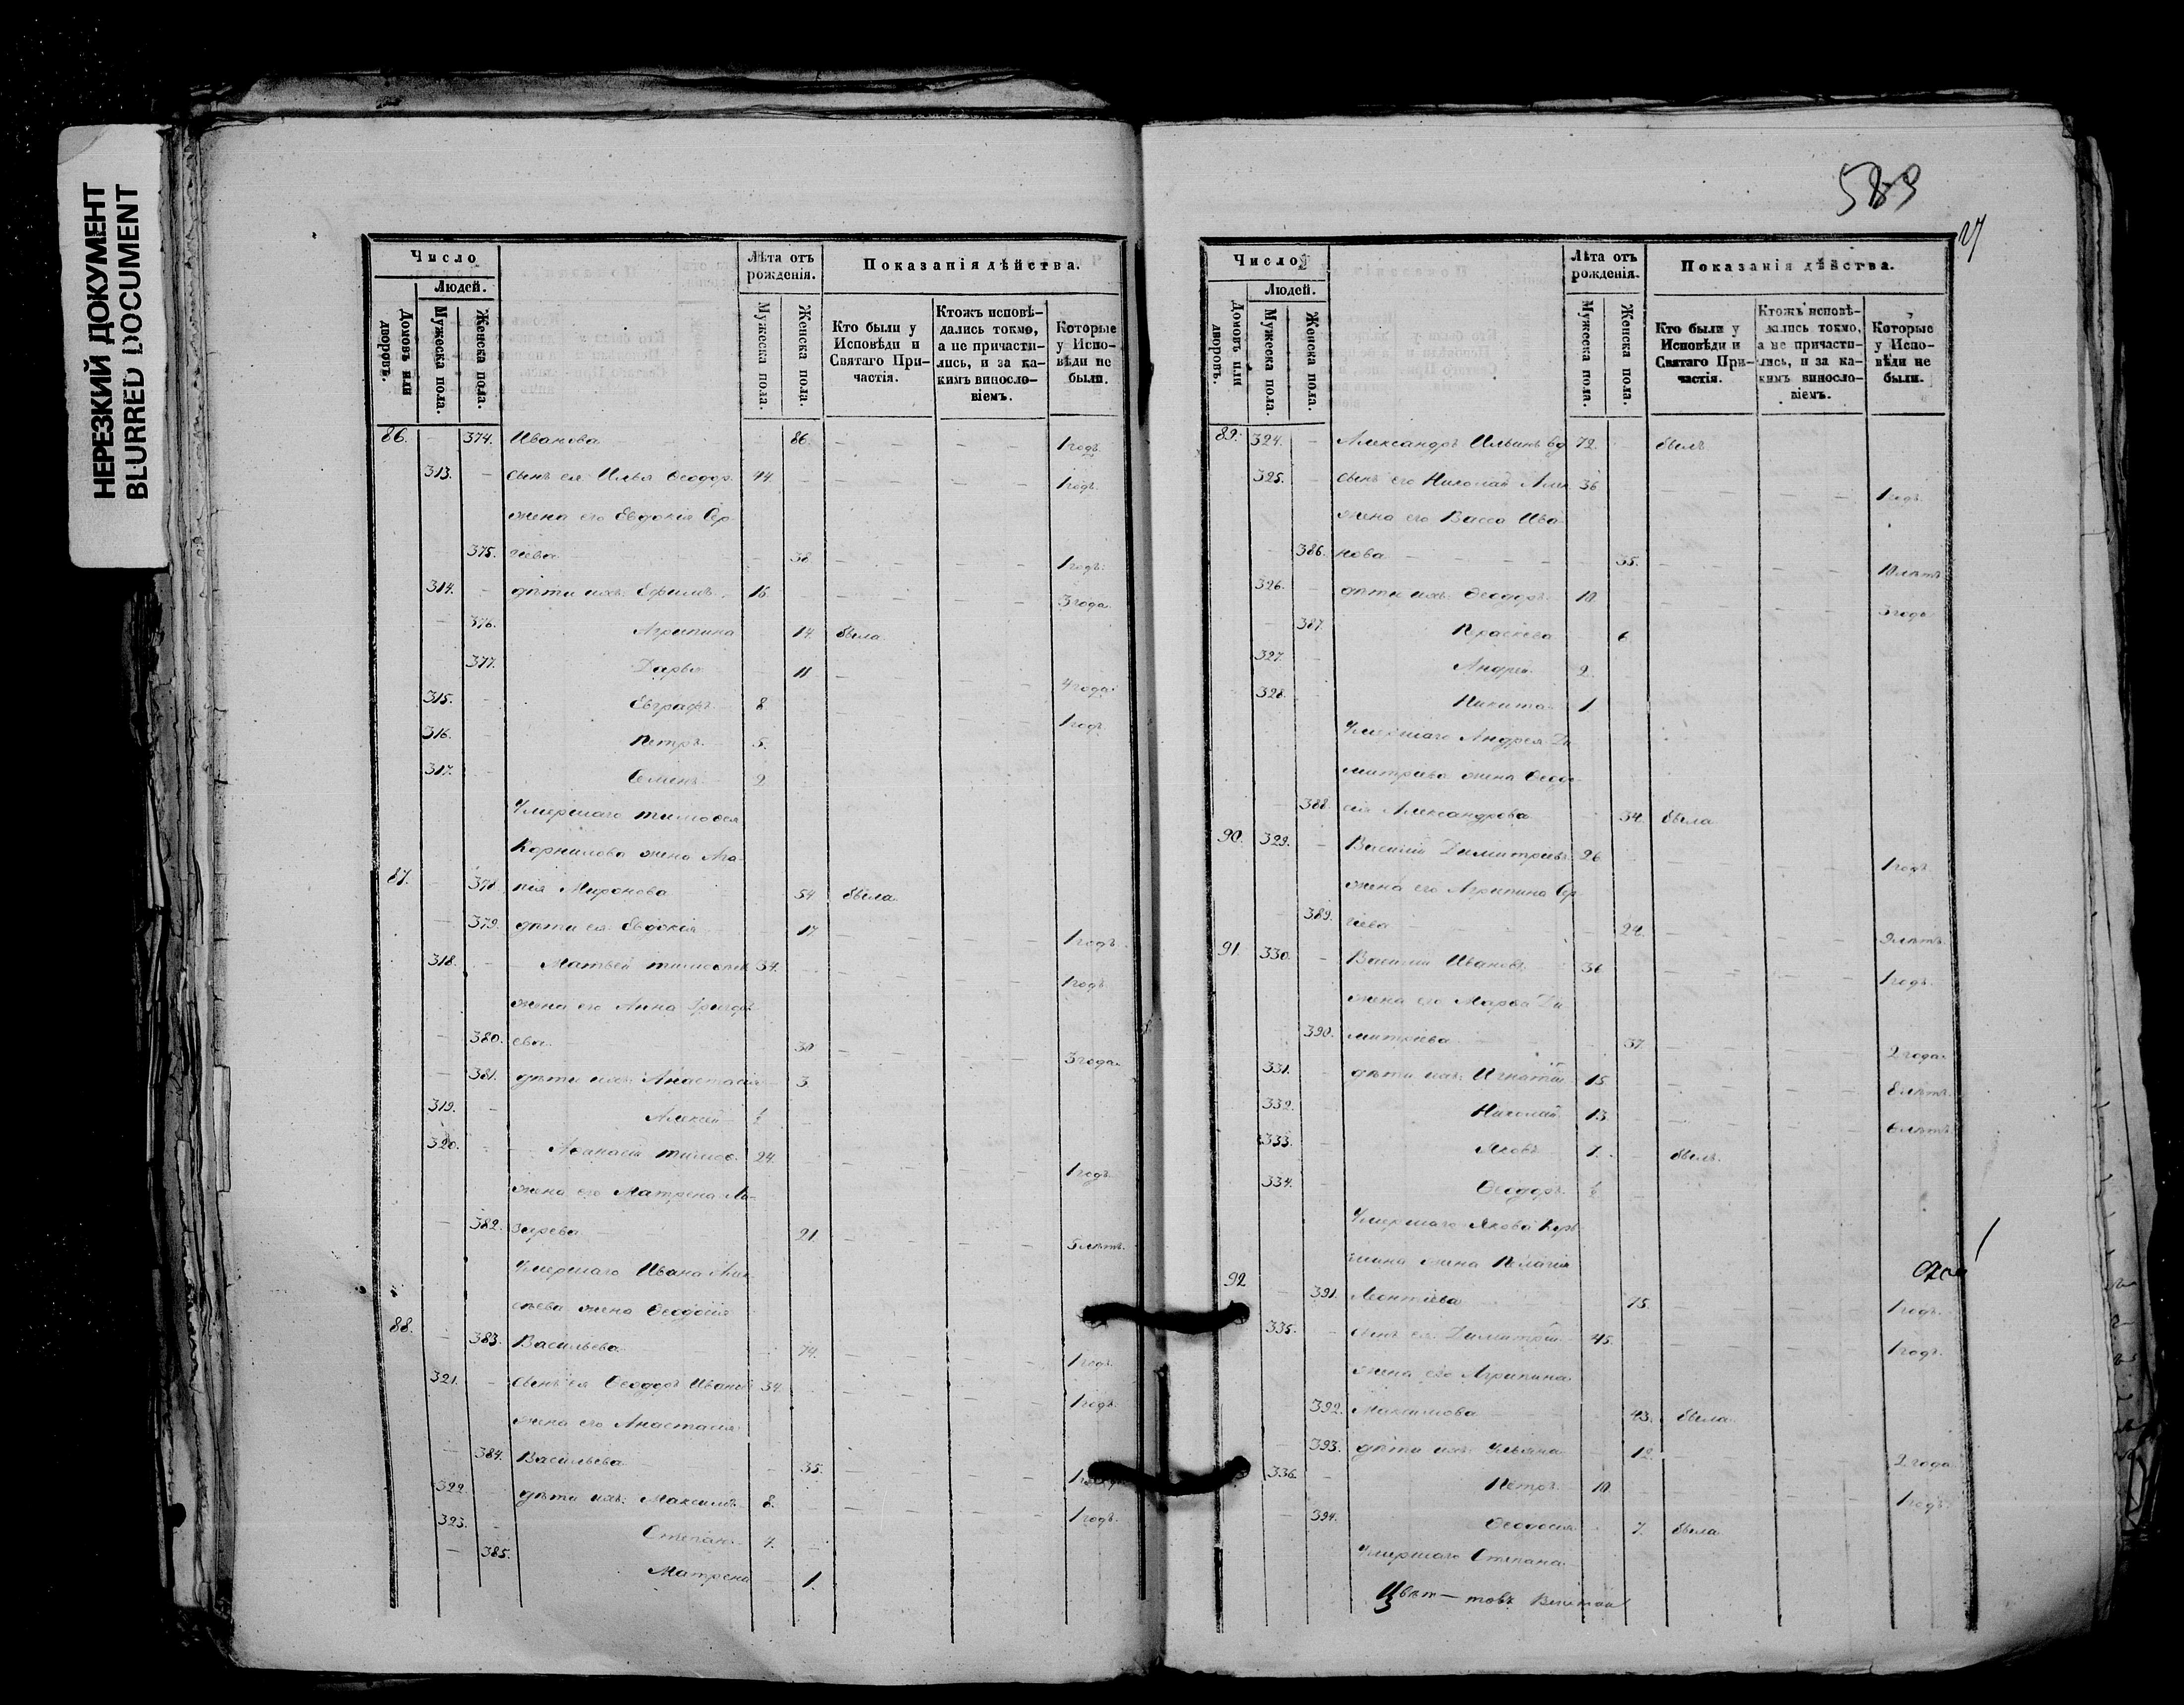 НЕРЕЗКИЙ ДОКУМЕНТ
BLURRED DOCUMENT
Число
Людей.
Домовъ или дворовъ.
Мужеска пола.
Женска пола.
Лѣта отъ рожденія.
Мужеска пола.
Женска пола.
Показанія дѣйства.
Кто были у Исповѣди и Святаго При-частія.
Ктожъ исповѣ-дались токмо, а не причасти-лись, и за ка-кимъ виносло-віемъ.
Которые у Испо-вѣди не были.
86. - 374. Иванова 86. - - - 1 годъ.
313. - сынъ ея Илья Ѳеодор. 44. - - - 1 годъ.
жена его Евдокія Сер-
375. гіева 38 - - - 1 годъ.
314. - дѣти ихъ: Ефимъ. 16. - - - 3 года.
376. Агрипина 14. была.
377. Дарья 11 - - - 4 года.
315. - Евграфъ 8. 1 годъ.
316. - Петръ. 5.
317. - Семенъ 2
Умершаго Тимоѳея
Корнилова жена Ага-
87. - 378. пія Миронова 54 была.
379. дѣти ея Евдокія 17. - - - 1 годъ.
318. - Матвей Тимоѳеев 34. - 1 годъ.
жена его Анна Григорь-
380. ева. 30 - - - 3 года.
381. дѣти ихъ: Анастасія 3
319. - Алексей ½ -
320. - Аѳанасій Тимоѳ. 24. - - - 1 годъ.
жена его Матрена Ла-
382. зарева 21. - - - 5 лѣтъ.
Умершаго Ивана Алек-
сѣева жена Ѳеодосія
88. - 383. Васильева. 74. - - - 1 годъ.
321. - сынъ ея Ѳеодоръ Ивановъ 34. - - - 1 годъ.
жена его Анастасія
384. Васильева 35. - - - 1 годъ.
322. дѣти ихъ: Максимъ 8. - - - 1 годъ.
323. - Степанъ 4. -
- 385. Матрена 1.
589
27
Число
Людей.
Домовъ или дворовъ.
Мужеска пола.
Женска пола.
Лѣта отъ рожденія.
Мужеска пола.
Женска пола.
Показанія дѣйства.
Кто были у Исповѣди и Святаго При-частія.
Ктожъ исповѣ-дались токмо, а не причасти-лись, и за ка-кимъ виносло-віемъ.
Которые у Испо-вѣди не были.
89. 324. - Александръ Ильинъ вд 72. былъ
325. - сынъ его Николай Алек. 36 - - - 1 годъ.
жена его Васса Ива-
386. нова - 35. - - - 10 лѣтъ
326. - дѣти ихъ: Ѳеодоръ. 10. - - - 3 года
387. Параскева 6.
327. - Андрей 2. -
328. - Никита 1
Умершаго Андрея Ди-
митріева жена Ѳеодо-
388. сія Александрова 34. была
90. 329. - Василій Димитріевъ 26 - - - 1 годъ.
жена его Агрипина Сер-
389. гіева 22. - - - 9 лѣтъ.
91. 330. - Василій Ивановъ 36 - - - 1 годъ.
жена его Марья Ди-
390. митріева 37. - - - 2 года.
331. - дѣти ихъ: Игнатій 15. - - - 8 лѣтъ.
332. - Николай 13. - - - 6 лѣтъ.
333. - Яковъ 7. - былъ.
334. - Ѳеодоръ. ½ -
Умершаго Якова Кузь-
мина жена Пелагія
92 - 391. Леонтіева 75. 1 годъ.
335. - сынъ ея Димитрій 45. 1 годъ.
жена его Агрипина
392. Максимова 43. была.
393. дѣти ихъ: Ульяна 12. - 2 года
336. - Петръ 10. - 1 годъ.
394. Ѳеодосія 7. была
Умершаго Степана